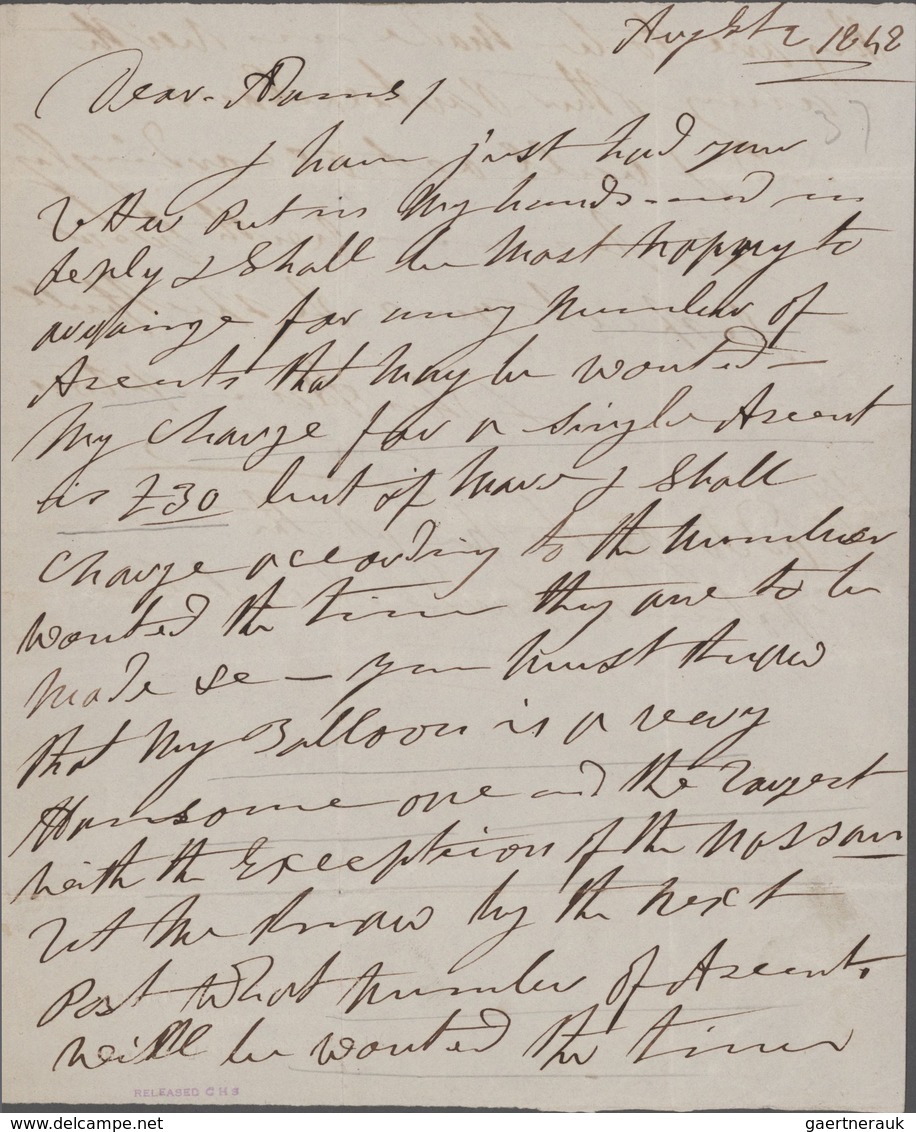 Augst 2 1848
Dear Adams /
I have just had your
Letter Put in My hands - and in
reply I Shall be Most Happy to
arrainge for any Number of
Ascents that May be wanted -
My Charge for a Single Ascent
is £30 but if More I Shall
Charge according to the Number
wanted the time they are to be
Made &c - you Must know
that My Balloon is a very
Hansome one and the Largest
with the Exception of the Nassau
Let Me know by the Next
Post What Number of Ascents
Will be wanted the time
RELEASED C H S
gaertnerauk